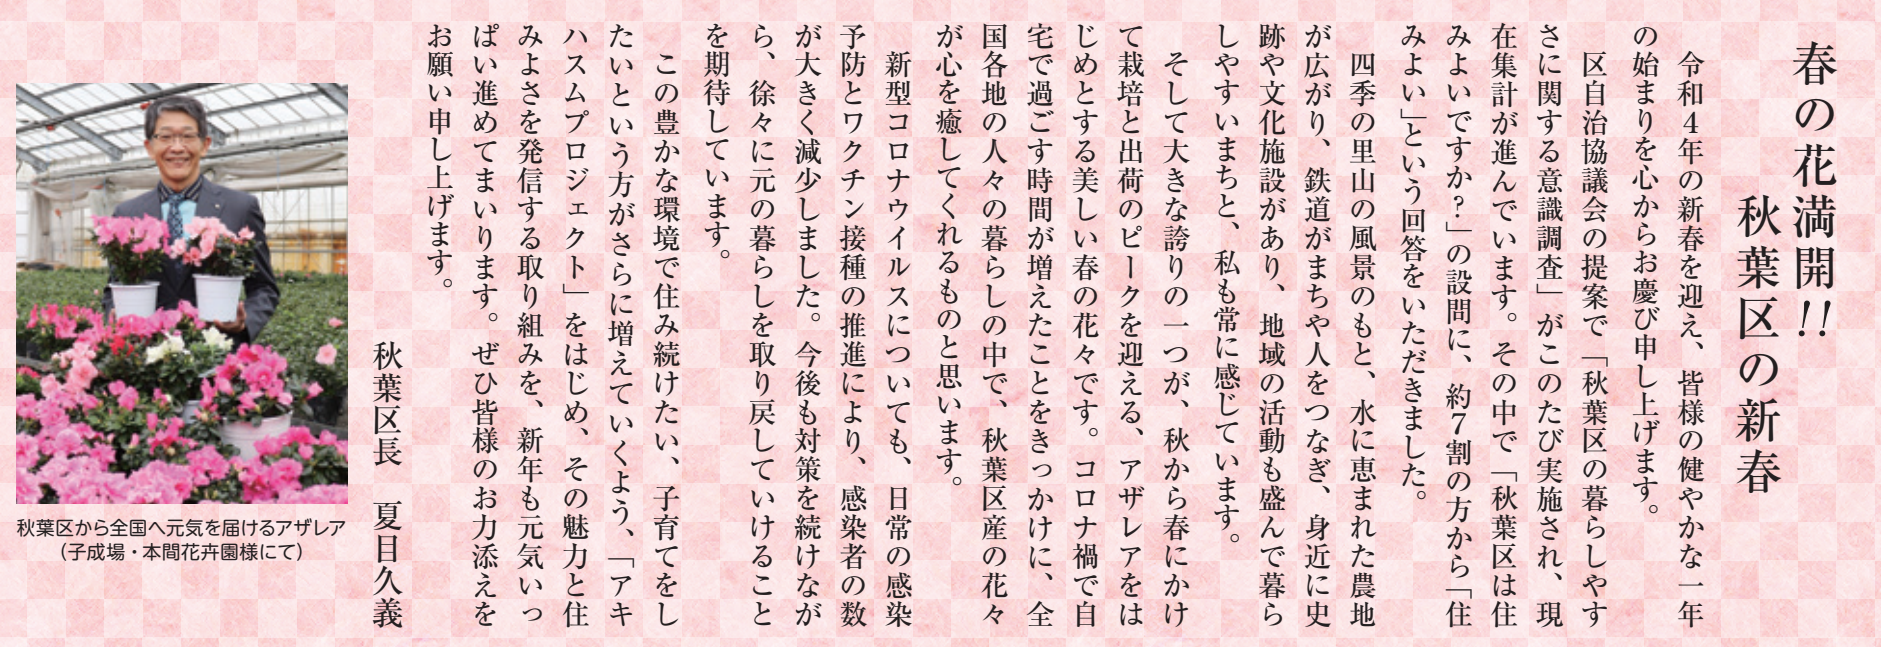 春の花満開!!
秋葉区の新春
令和４年の新春を迎え、皆様の健やかな一年
の始まりを心からお慶び申し上げます。
区自治協議会の提案で「秋葉区の暮らしやす
さに関する意識調査」がこのたび実施され、現
在集計が進んでいます。その中で「秋葉区は住
みよいですか？」の設問に、約７割の方から「住
みよい」という回答をいただきました。
四季の里山の風景のもと、水に恵まれた農地
が広がり、鉄道がまちや人をつなぎ、身近に史
跡や文化施設があり、地域の活動も盛んで暮ら
しやすいまちと、私も常に感じています。
そして大きな誇りの一つが、秋から春にかけ
て栽培と出荷のピークを迎える、アザレアをは
じめとする美しい春の花々です。コロナ禍で自
宅で過ごす時間が増えたことをきっかけに、全
国各地の人々の暮らしの中で、秋葉区産の花々
が心を癒してくれるものと思います。
新型コロナウイルスについても、日常の感染
予防とワクチン接種の推進により、感染者の数
が大きく減少しました。今後も対策を続けなが
ら、徐々に元の暮らしを取り戻していけること
を期待しています。
この豊かな環境で住み続けたい、子育てをし
たいという方がさらに増えていくよう、「アキ
ハスムプロジェクト」をはじめ、その魅力と住
みよさを発信する取り組みを、新年も元気いっ
ぱい進めてまいります。ぜひ皆様のお力添えを
お願い申し上げます。
秋葉区長　夏目久義
秋葉区から全国へ元気を届けるアザレア
（子成場・本間花卉園様にて）